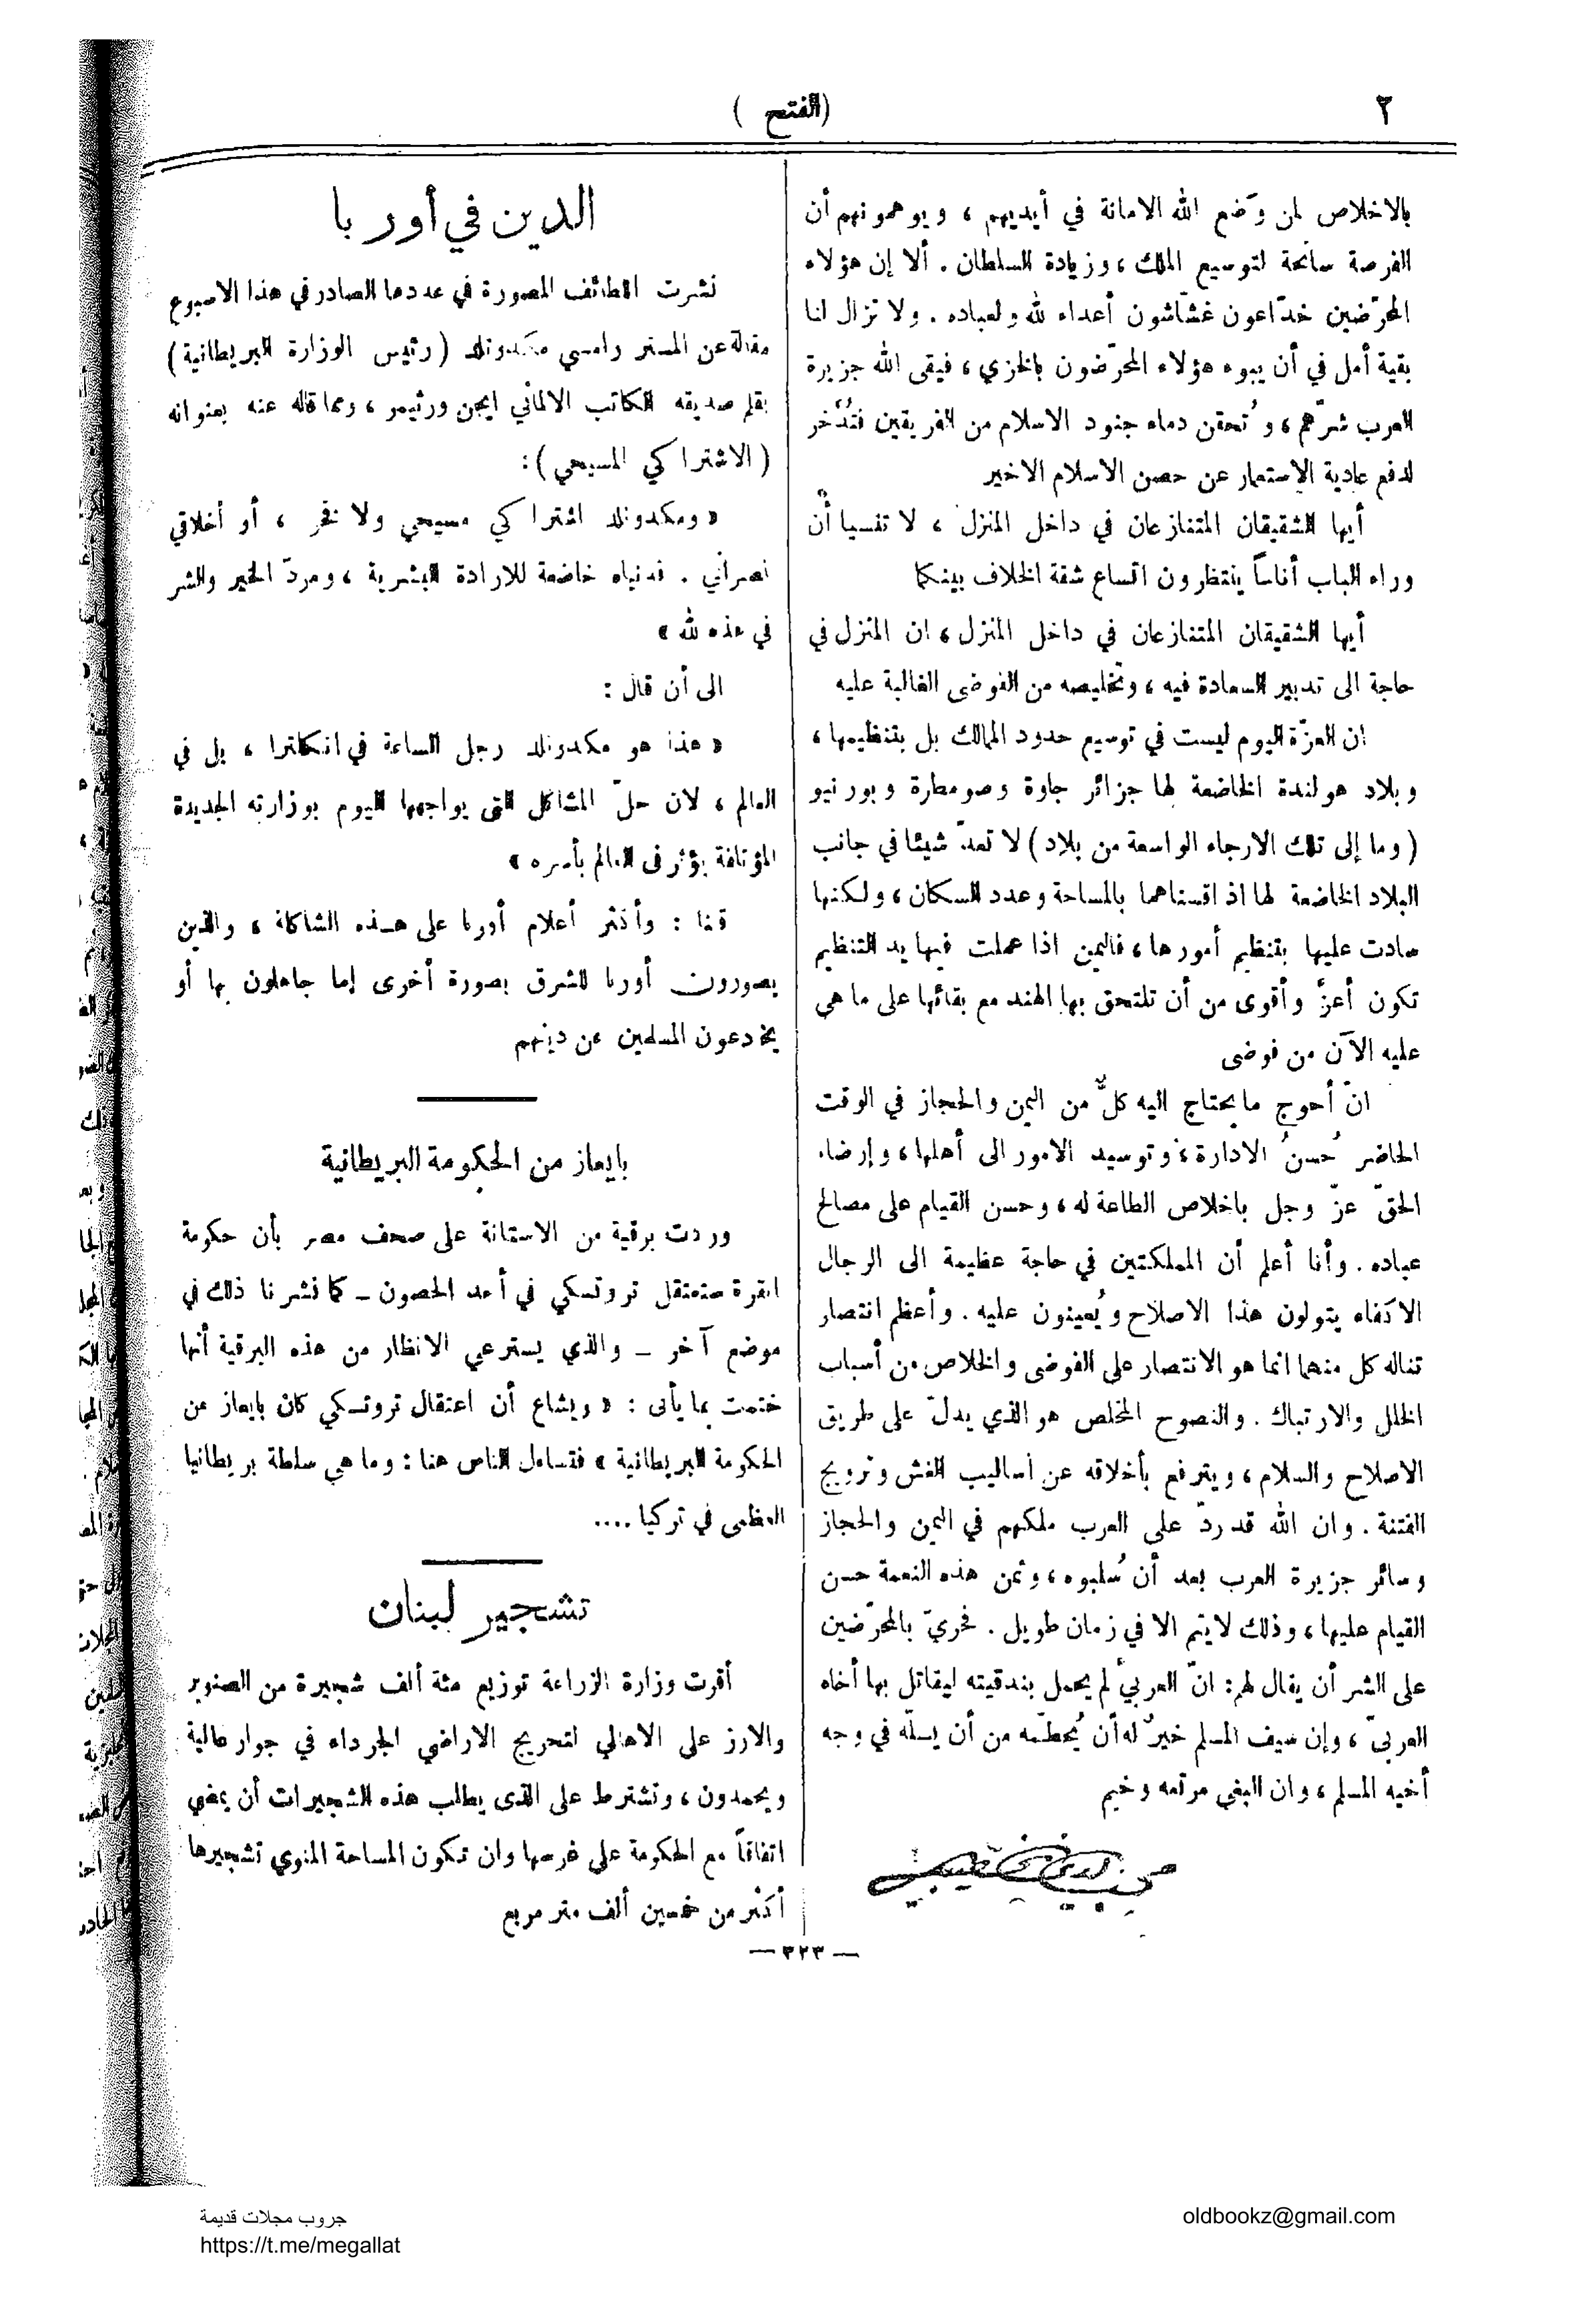 ٢
(الفتح )
بالاخلاص لمن وَضع الله الامانة في أيديهم ، ويوهمونهم أن
الفرصة سانحة لتوسيع الملك ، وزيادة السلطان . ألا إن هؤلاء
المحرّضين خدّاعون غشّاشون أعداء لله ولعباده . ولا تزال لنا
بقية أمل في أن يبوء هؤلاء المحرّضون بالخزي ، فيقى الله جزيرة
العرب شرّهم ، وتُحقن دماء جنود الاسلام من الفريقين فتُدّخر
لدفع عادية الاستعمار عن حصن الاسلام الاخير
أيها الشقيقان المتنازعان في داخل المنزل ، لا تنسيا أن
وراء الباب أناساً ينتظرون اتساع شقة الخلاف بينكما
أيها الشقيقان المتنازعان في داخل المنزل ، ان المنزل في
حاجة الى تدبير السعادة فيه ، وتخليصه من الفوضى الغالبة عليه
ان العزّة اليوم ليست في توسيع حدود الممالك بل بتنظيمها ،
وبلاد هولندة الخاضعة لها جزائر جاوة وصومطرة وبورنيو
( وما إلى تلك الارجاء الواسعة من بلاد ) لا تعدّ شيئا في جانب
البلاد الخاضعة لها اذ اقسناهما بالمساحة وعدد السكان ، ولكنها
سادت عليها بتنظيم أمورها ، فاليمن اذا عملت فيها يد التنظيم
تكون أعزَّ وأقوى من أن تلتحق بها الهند مع بقائها على ما هي
عليه الآن من فوضى
انّ أحوج ما يحتاج اليه كلٌّ من اليمن والحجاز في الوقت
الحاضر حُسنُ الادارة ، وتوسيد الامور الى أهلها ، وإرضاء
الحقّ عزّ وجل باخلاص الطاعة له ، وحسن القيام على مصالح
عباده . وأنا أعلم أن المملكتين في حاجة عظيمة الى الرجال
الاكفاء يتولون هذا الاصلاح ويُعينون عليه . وأعظم انتصار
تناله كل منهما انما هو الانتصار على الفوضى والخلاص من أسباب
الخلل والارتباك . والنصوح المخلص هو الذي يدلّ على طريق
الاصلاح والسلام ، ويترفع بأخلاقه عن أساليب الغش وترويج
الفتنة . وان الله قد ردّ على العرب ملكهم في اليمن والحجاز
وسائر جزيرة العرب بعد أن سُلبوه ، وثمن هذه النعمة حسن
القيام عليها ، وذلك لا يتم الا في زمان طويل . فحريّ بالمحرّضين
على الشر أن يقال لهم : انّ العربيّ لم يحمل بندقيته ليقاتل بها أخاه
العربىّ ، وإن سيف المسلم خيرٌ له أن يُحطّمه من أن يسلّه في وجه
أخيه المسلم ، وان البغي مرتعه وخيم
محب الدين الخطيب
الدين في أوربا
نشرت اللطائف المصورة في عددها الصادر في هذا الاسبوع
مقالة عن المستر رامسي مكدونلد ( رئيس الوزارة البريطانية )
بقلم صديقه الكاتب الالماني ايجن ورثيمر ، ومما قاله عنه بعنوانه
( الاشتراكي المسيحي ) :
« ومكدونلد اشتراكي مسيحي ولا فخر ، أو أخلاقي
نصراني . فدنياه خاضعة للارادة البشرية ، ومردّ الخير والشر
في هذه لله »
الى أن قال :
« هذا هو مكدونلد رجل الساعة في انكلترا ، بل في
العالم ، لان حلّ المشاكل التى يواجهها اليوم بوزارته الجديدة
المؤتلفة يؤثر فى العالم بأسره »
قلنا : وأكثر أعلام أوربا على هذه الشاكلة ، والذين
يصورون أوربا للشرق بصورة أخرى إما جاهلون بها أو
يخادعون المسلمين عن دينهم
بايعاز من الحكومة البريطانية
وردت برقية من الاستانة على صحف مصر بأن حكومة
انقرة ستعتقل تروتسكي في أحد الحصون ـ كما نشرنا ذلك في
موضع آخر ـ والذي يسترعي الانظار من هذه البرقية أنها
ختمت بما يأتى : « ويشاع أن اعتقال تروتسكي كان بايعاز من
الحكومة البريطانية » فتساءل الناس هنا : وما هي سلطة بريطانيا
العظمى في تركيا ....
تشجير لبنان
أقرت وزارة الزراعة توزيع مئة ألف شجيرة من الصنوبر
والارز على الاهالي لتحريج الاراضي الجرداء في جوار عالية
وبحمدون ، وتشترط على الذى يطلب هذه الشجيرات أن يمضي
اتفاقاً مع الحكومة على غرسها وان تكون المساحة المنوي تشجيرها
أكثر من خمسين ألف متر مربع
— ٣٢٣ —
جروب مجلات قديمة
https://t.me/megallat
oldbookz@gmail.com